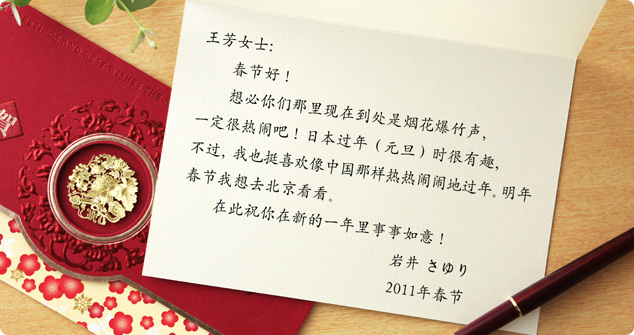 王芳女士:
春节好！
想必你们那里现在到处是烟花爆竹声，
一定很热闹吧！日本过年（元旦）时很有趣，
不过，我也挺喜欢像中国那样热热闹闹地过年。明年
春节我想去北京看看。
在此祝你在新的一年里事事如意！
岩井 さゆり
2011年春节
BEST WISHES THE